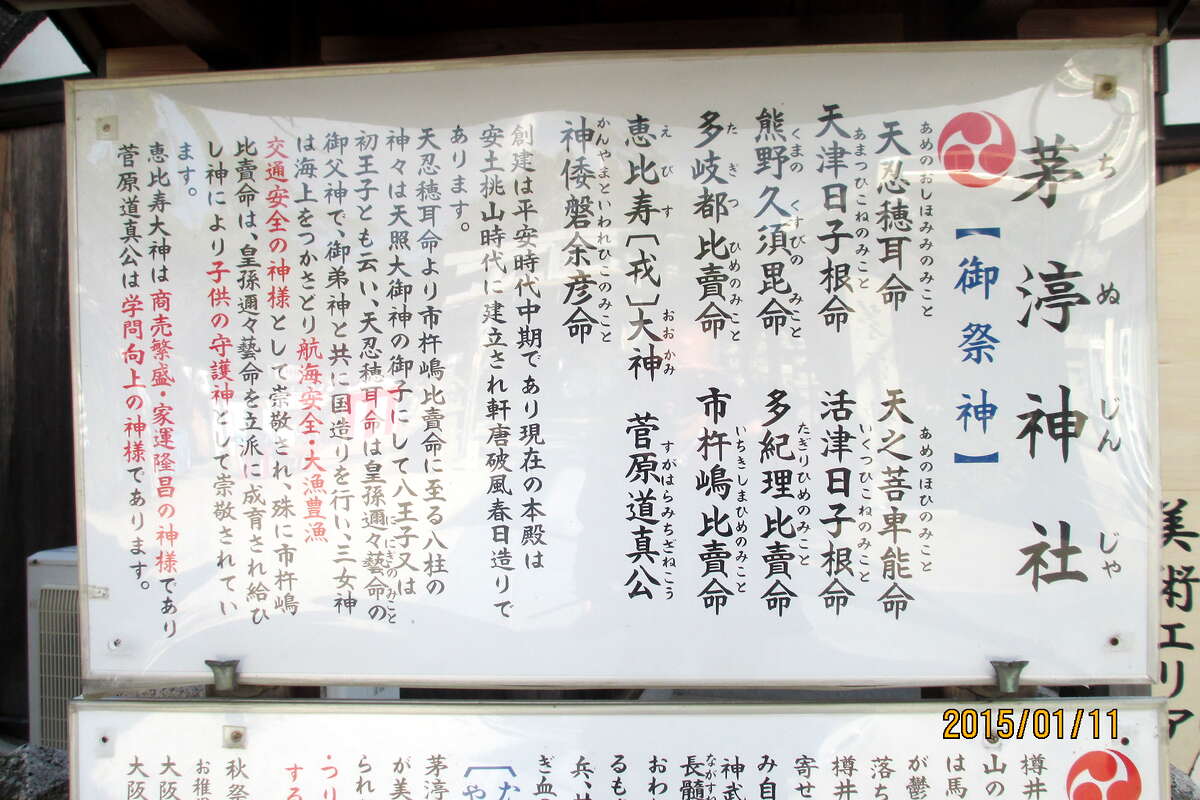 茅渟神社
ちぬじんじゃ
【御祭神】
天忍穂耳命
あめのおしほみみのみこと
天之菩卑能命
あめのほひのみこと
天津日子根命
あまつひこねのみこと
活津日子根命
いくつひこねのみこと
熊野久須毘命
くまのくすびのみこと
多紀理比賣命
たぎりひめのみこと
多岐都比賣命
たぎつひめのみこと
市杵嶋比賣命
いちきしまひめのみこと
恵比寿〔戎〕大神
えびすおおかみ
菅原道真公
すがはらみちざねこう
神倭磐余彦命
かんやまといわれひこのみこと
創建は平安時代中期であり現在の本殿は
安土桃山時代に建立され軒唐破風春日造りで
あります。
天忍穂耳命より市杵嶋比賣命に至る八柱の
神々は天照大御神の御子にして八王子又は
初王子とも云い、天忍穂耳命は皇孫邇々藝命の
ににぎのみこと
御父神で、御弟神と共に国造りを行い、三女神
は海上をつかさどり航海安全・大漁豊漁
交通安全の神様として崇敬され、殊に市杵嶋
比賣命は、皇孫邇々藝命を立派に成育され給ひ
し神により子供の守護神として崇敬されてい
ます。
恵比寿大神は商売繁盛・家運隆昌の神様であり
菅原道真公は学問向上の神様であります。
美術エリア
2015/01/11
樽井
山の
は馬
が鬱
落ち
樽井
寄せ
み自
神武
長髓
ながすね
おわ
るも
兵、
ぎ血
茅渟
が美
られ
・つり
する
秋祭
お稚
大阪
大阪